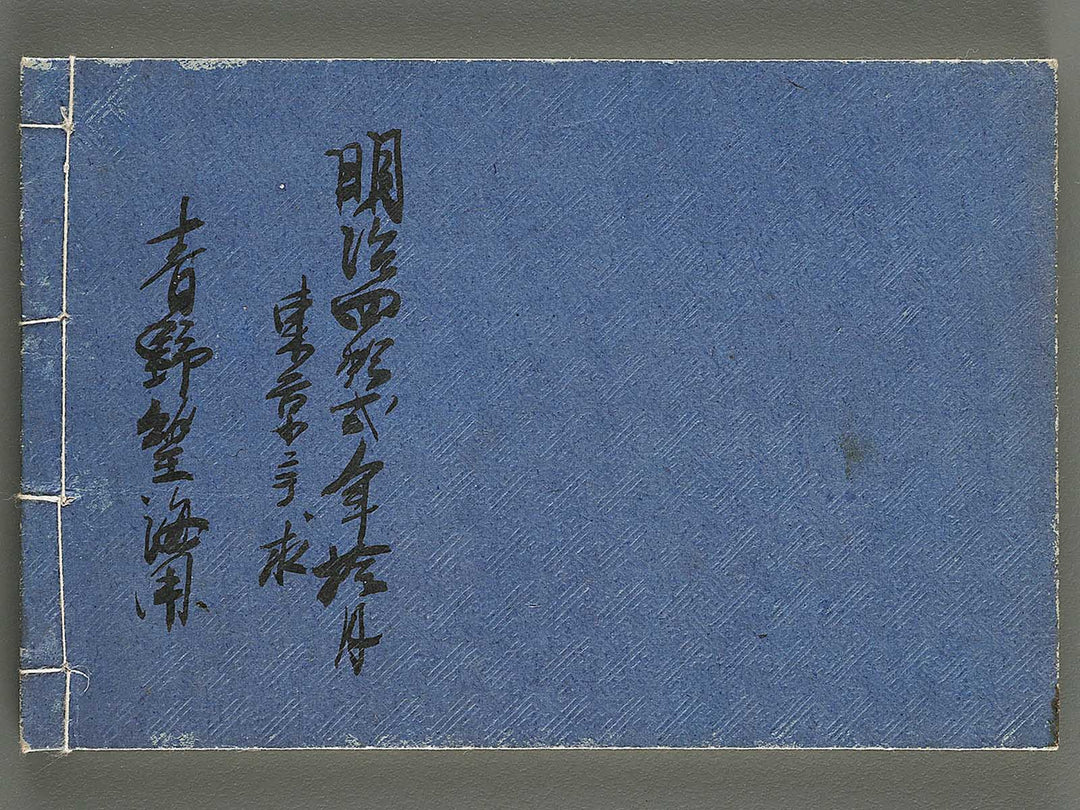 明治四拾弐年拾月
東京ニ於求
青野望海用